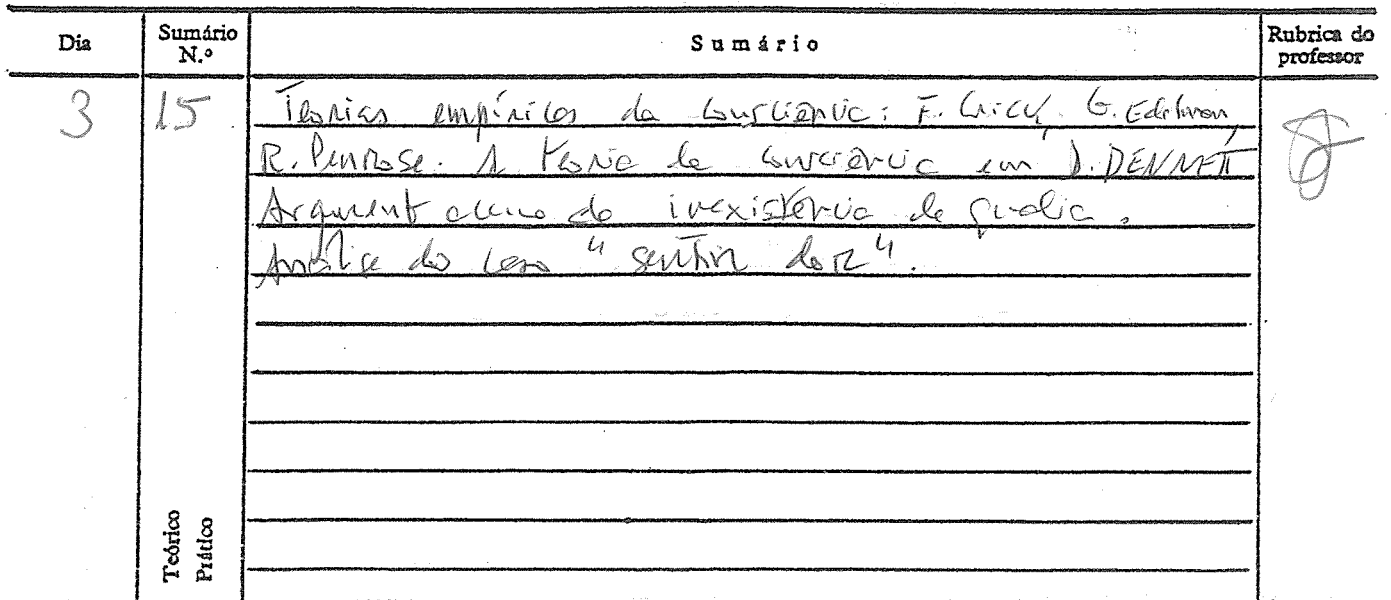 Dia
Sumário N.º
Sumário
Rubrica do professor
3
15
Teorias empíricas da consciência: F. Crick, G. Edelman,
R. Penrose. A teoria da consciência em D. DENNETT
Argument acerca da inexistência de qualia.
Análise do caso "sentir dor".
Teórico
Prático